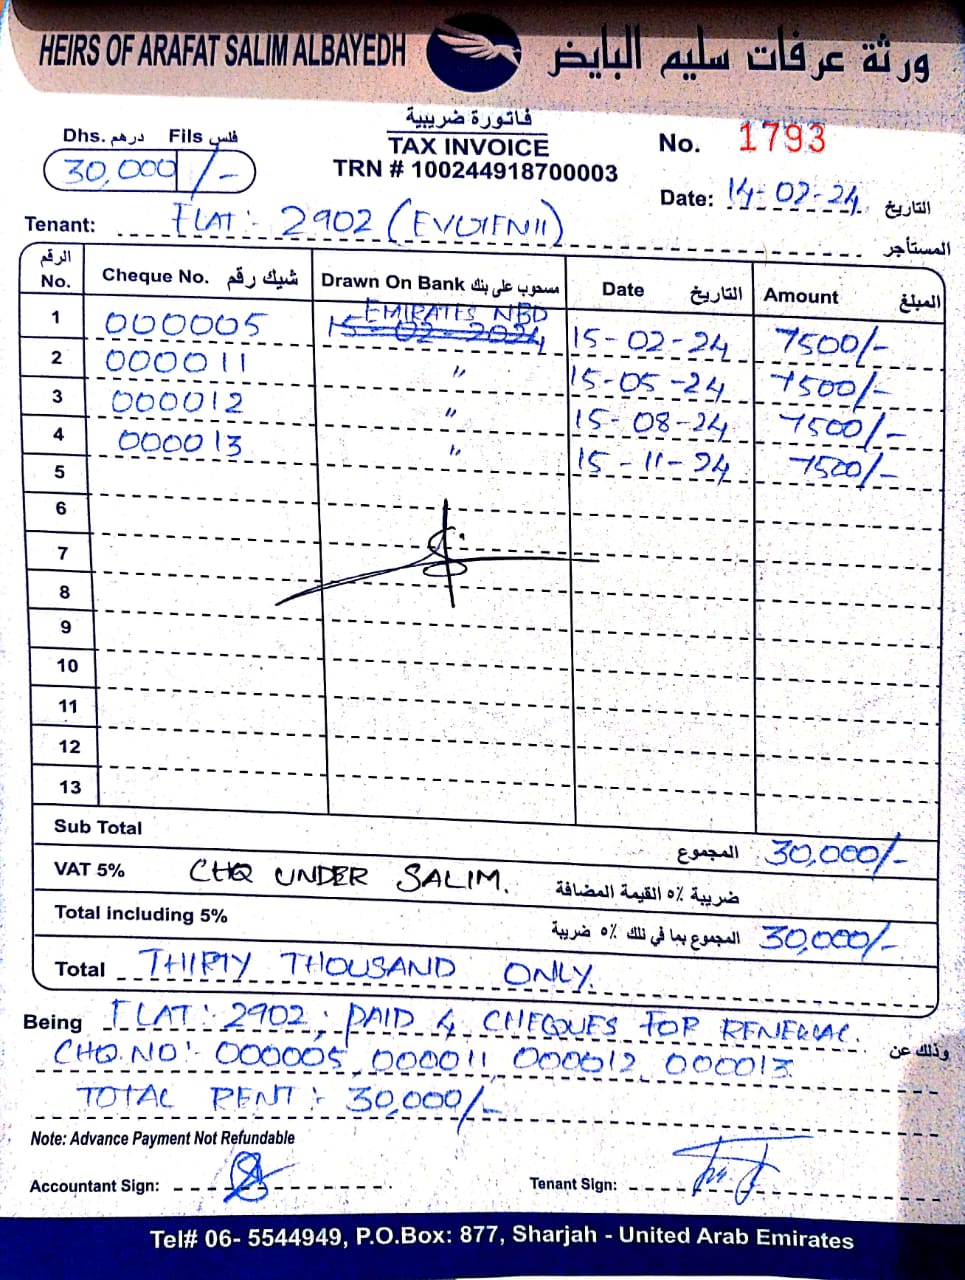 HEIRS OF ARAFAT SALIM ALBAYEDH
ورثة عرفات سليم البايض
Dhs. درهم Fils فلس
30,000/-
فاتورة ضريبية
TAX INVOICE
TRN # 100244918700003
No. 1793
Date: 14-02-24 التاريخ
Tenant: FLAT:- 2902 المستأجر
الرقم No. Cheque No. شيك رقم Drawn On Bank مسحوب على بنك Date التاريخ Amount المبلغ
1 000005 EMIRATES NBD 15-02-2024 15-02-24 7500/-
2 000011 " 15-05-24 7500/-
3 000012 " 15-08-24 7500/-
4 000013 " 15-11-24 7500/-
5
6
7
8
9
10
11
12
13
Sub Total المجموع 30,000/-
VAT 5% CHQ UNDER SALIM. ضريبة ٥٪ القيمة المضافة
Total including 5% المجموع بما في ذلك ٥٪ ضريبة 30,000/-
Total THIRTY THOUSAND ONLY.
Being FLAT:- 2902; PAID 4 CHEQUES FOR RENEWAL. وذلك عن
CHQ.NO:- 000005, 000011, 000012, 000013
TOTAL RENT:- 30,000/-
Note: Advance Payment Not Refundable
Accountant Sign: Tenant Sign:
Tel# 06- 5544949, P.O.Box: 877, Sharjah - United Arab Emirates